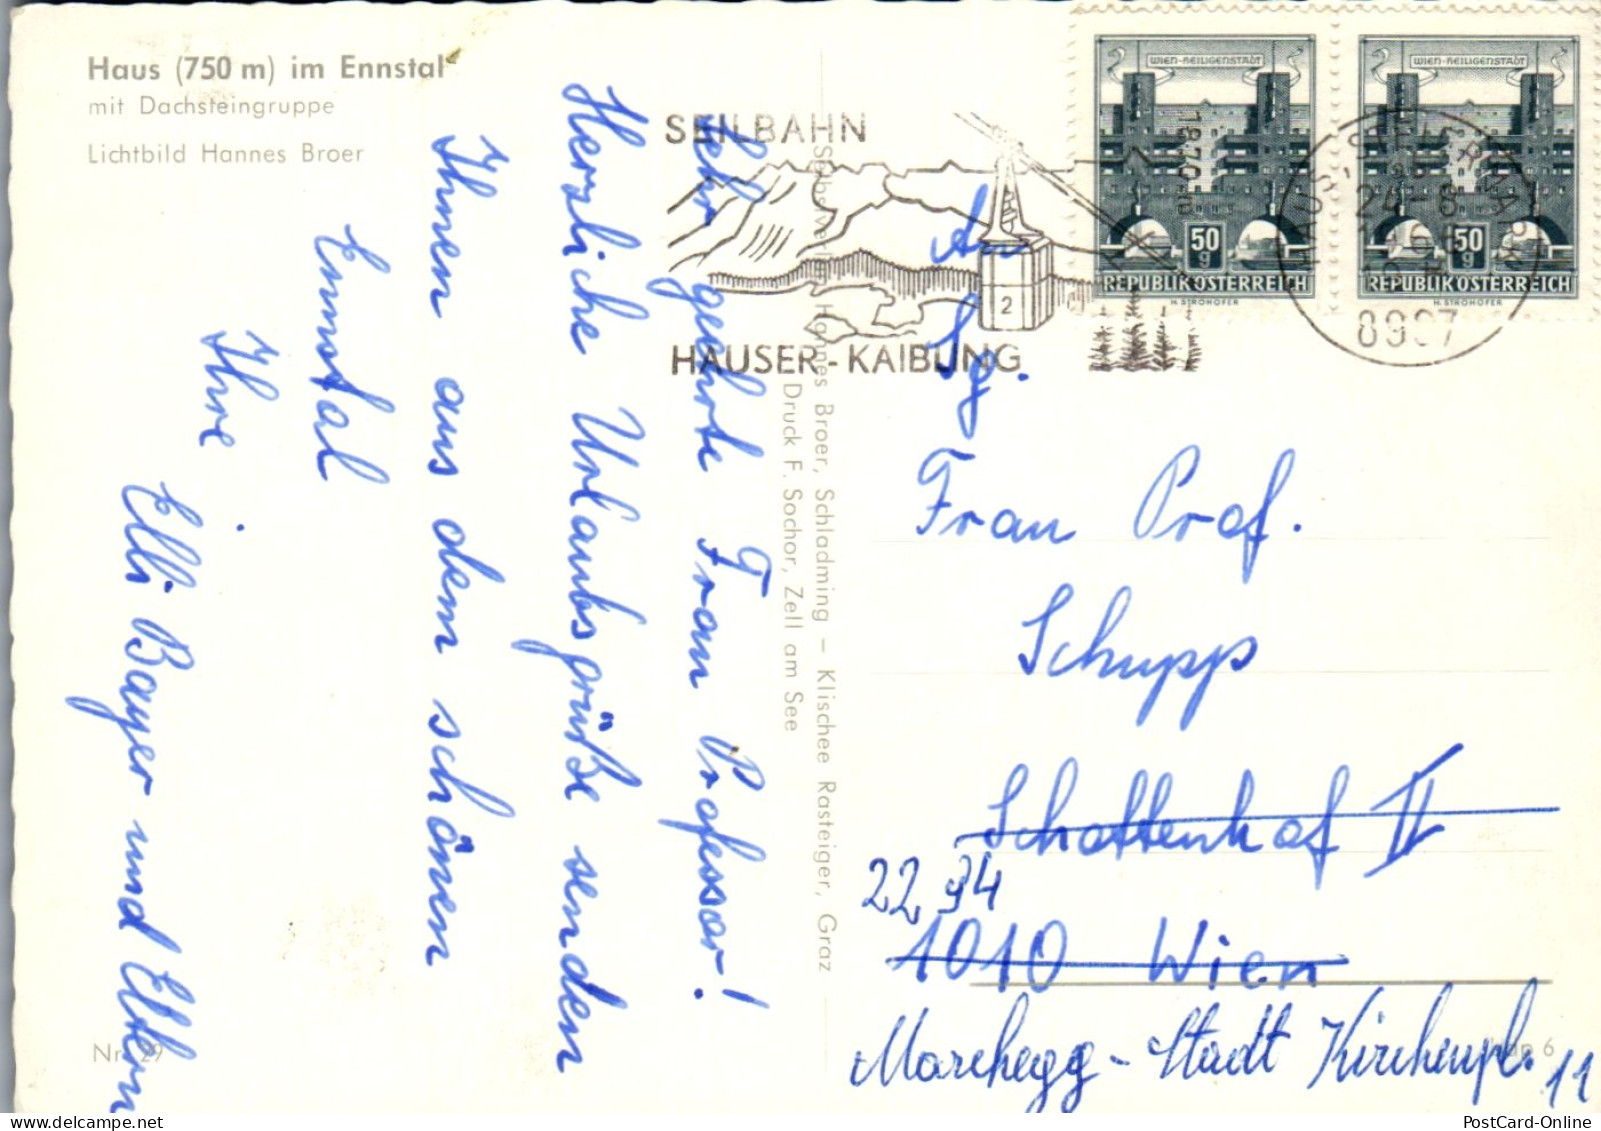 Haus (750 m) im Ennstal
mit Dachsteingruppe
Lichtbild Hannes Broer
Sehr geehrte Frau Professor!
Herzliche Urlaubsgrüße senden
Ihnen aus dem schönen
Ennstal
Ihre
Elli Bayer und Eltern
Selbstverlag Hannes Broer, Schladming – Klischee Rasteiger, Graz
Druck F. Sochor, Zell am See
SEILBAHN
2
HAUSER-KAIBLING
WIEN-HEILIGENSTADT
50
g
REPUBLIK ÖSTERREICH
H. STROHOFER
WIEN-HEILIGENSTADT
50
g
REPUBLIK ÖSTERREICH
H. STROHOFER
24-8
8967
An
Sg.
Frau Prof.
Schupp
Schottenhof II
22 94
1010 Wien
Marchegg-Stadt Kirchenpl. 11
Nr. 29
6
PostCard-Online